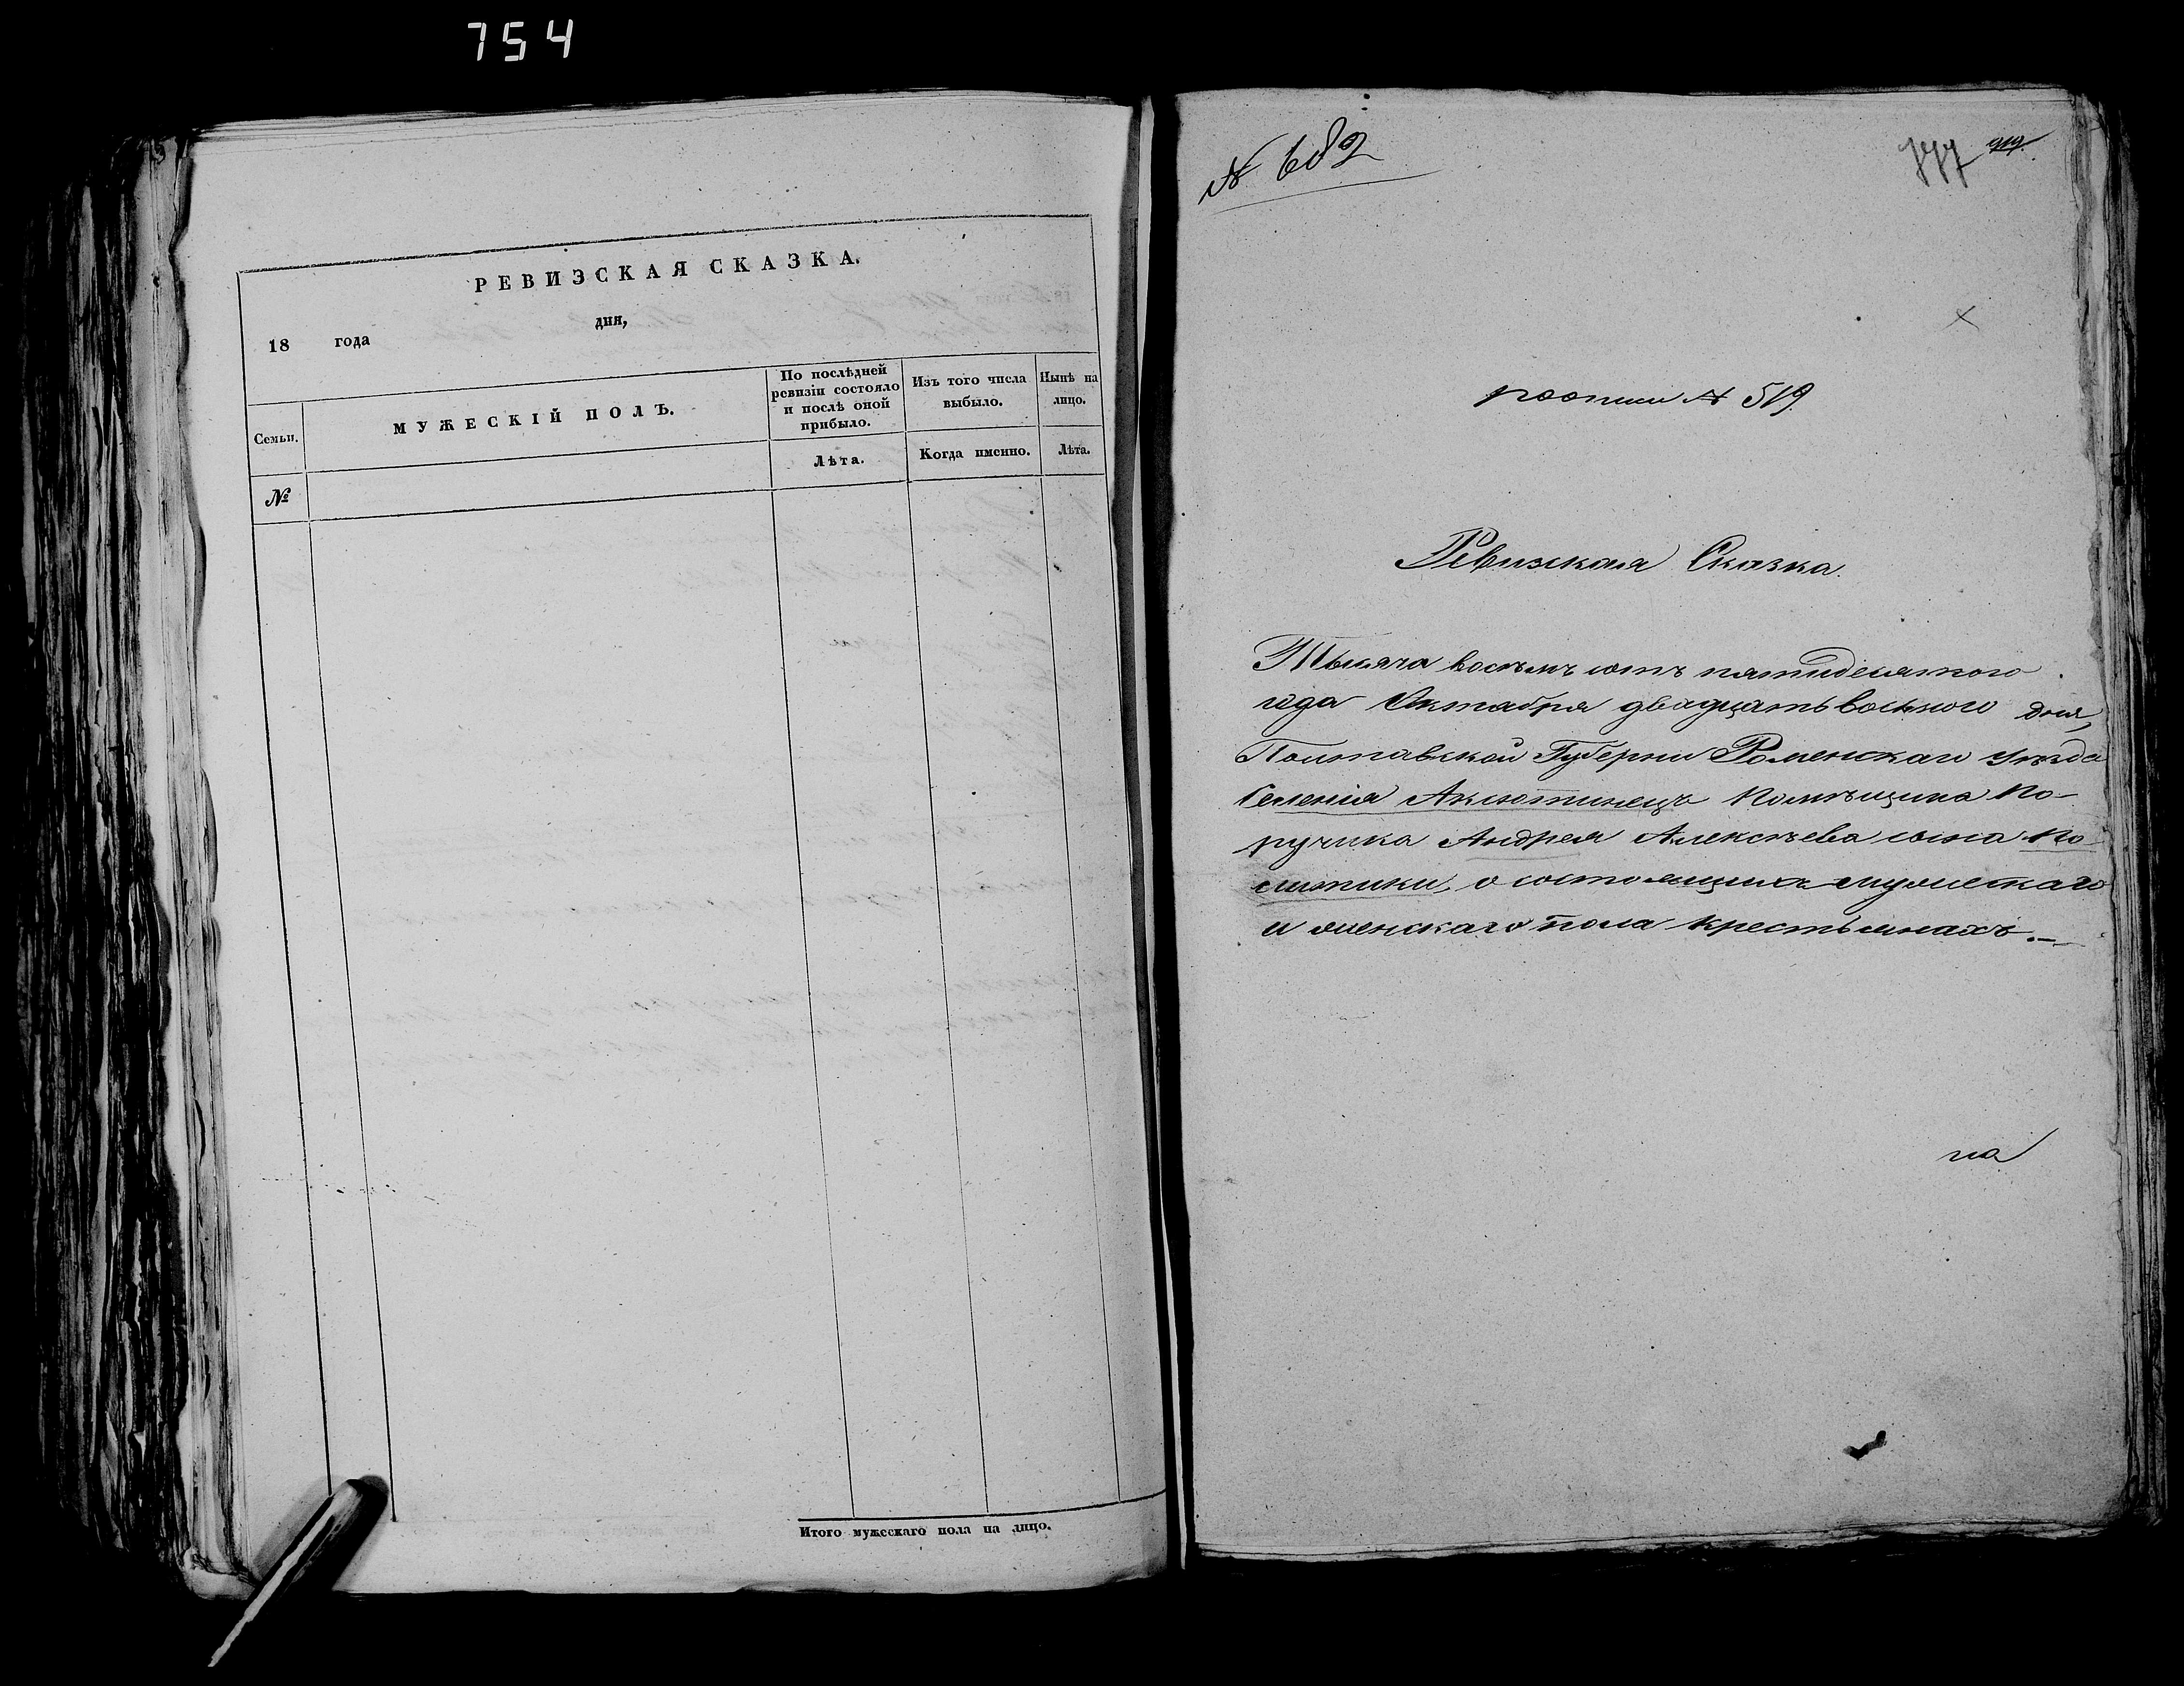 754
РЕВИЗСКАЯ СКАЗКА.
18 года дня,
Семьи.
МУЖЕСКІЙ ПОЛЪ.
По послѣдней
ревизіи состояло
и послѣ оной
прибыло.
Изъ того числа
выбыло.
Нынѣ на
лицо.
Лѣта.
Когда именно.
Лѣта.
№
Итого мужескаго пола на лицо.
№ 682
919
№ 519.
Ревизская Сказка.
Тысяча восемъ сотъ пятидесятого
года Октября двадцать восьмого дня,
Полтавской Губерніи Роменскаго Уѣзда
Селенія Аксютинецъ Помѣщика По-
ручика Андрея Алексѣева сына По-
литики, о состоящихъ мужескаго
и женскаго пола крестьянахъ.
на